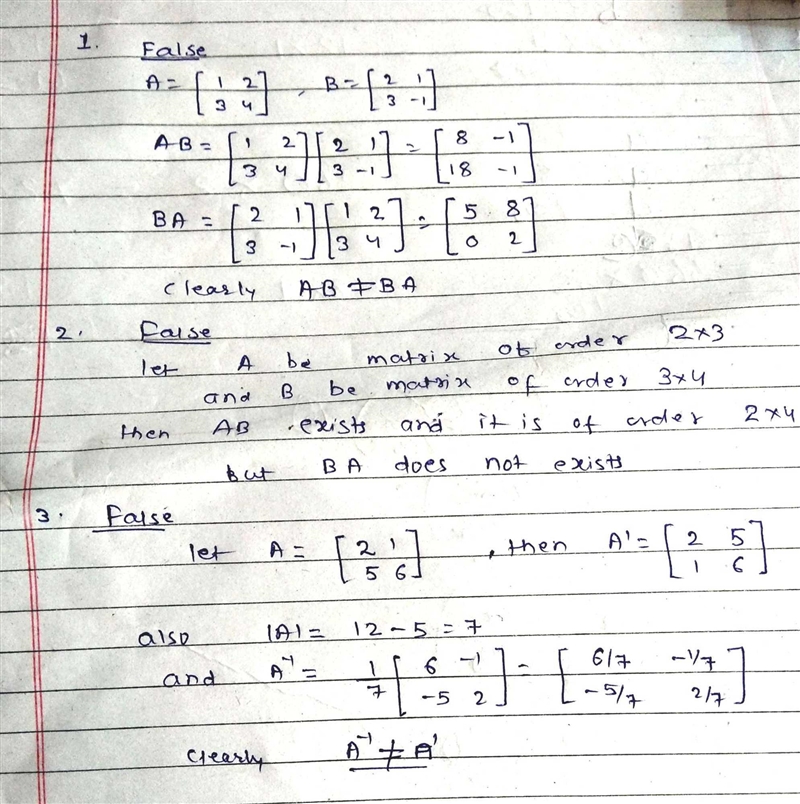 1. False
A = [1 2; 3 4], B = [2 1; 3 -1]
AB = [1 2; 3 4] [2 1; 3 -1] = [8 -1; 18 -1]
BA = [2 1; 3 -1] [1 2; 3 4] = [5 8; 0 2]
Clearly AB ≠ BA
2. False
let A be matrix of order 2×3
and B be matrix of order 3×4
then AB exists and it is of order 2×4
but BA does not exists
3. False
let A = [2 1; 5 6], then A' = [2 5; 1 6]
also |A| = 12 - 5 = 7
and A⁻¹ = 1/7 [6 -1; -5 2] = [6/7 -1/7; -5/7 2/7]
Clearly A⁻¹ ≠ A'